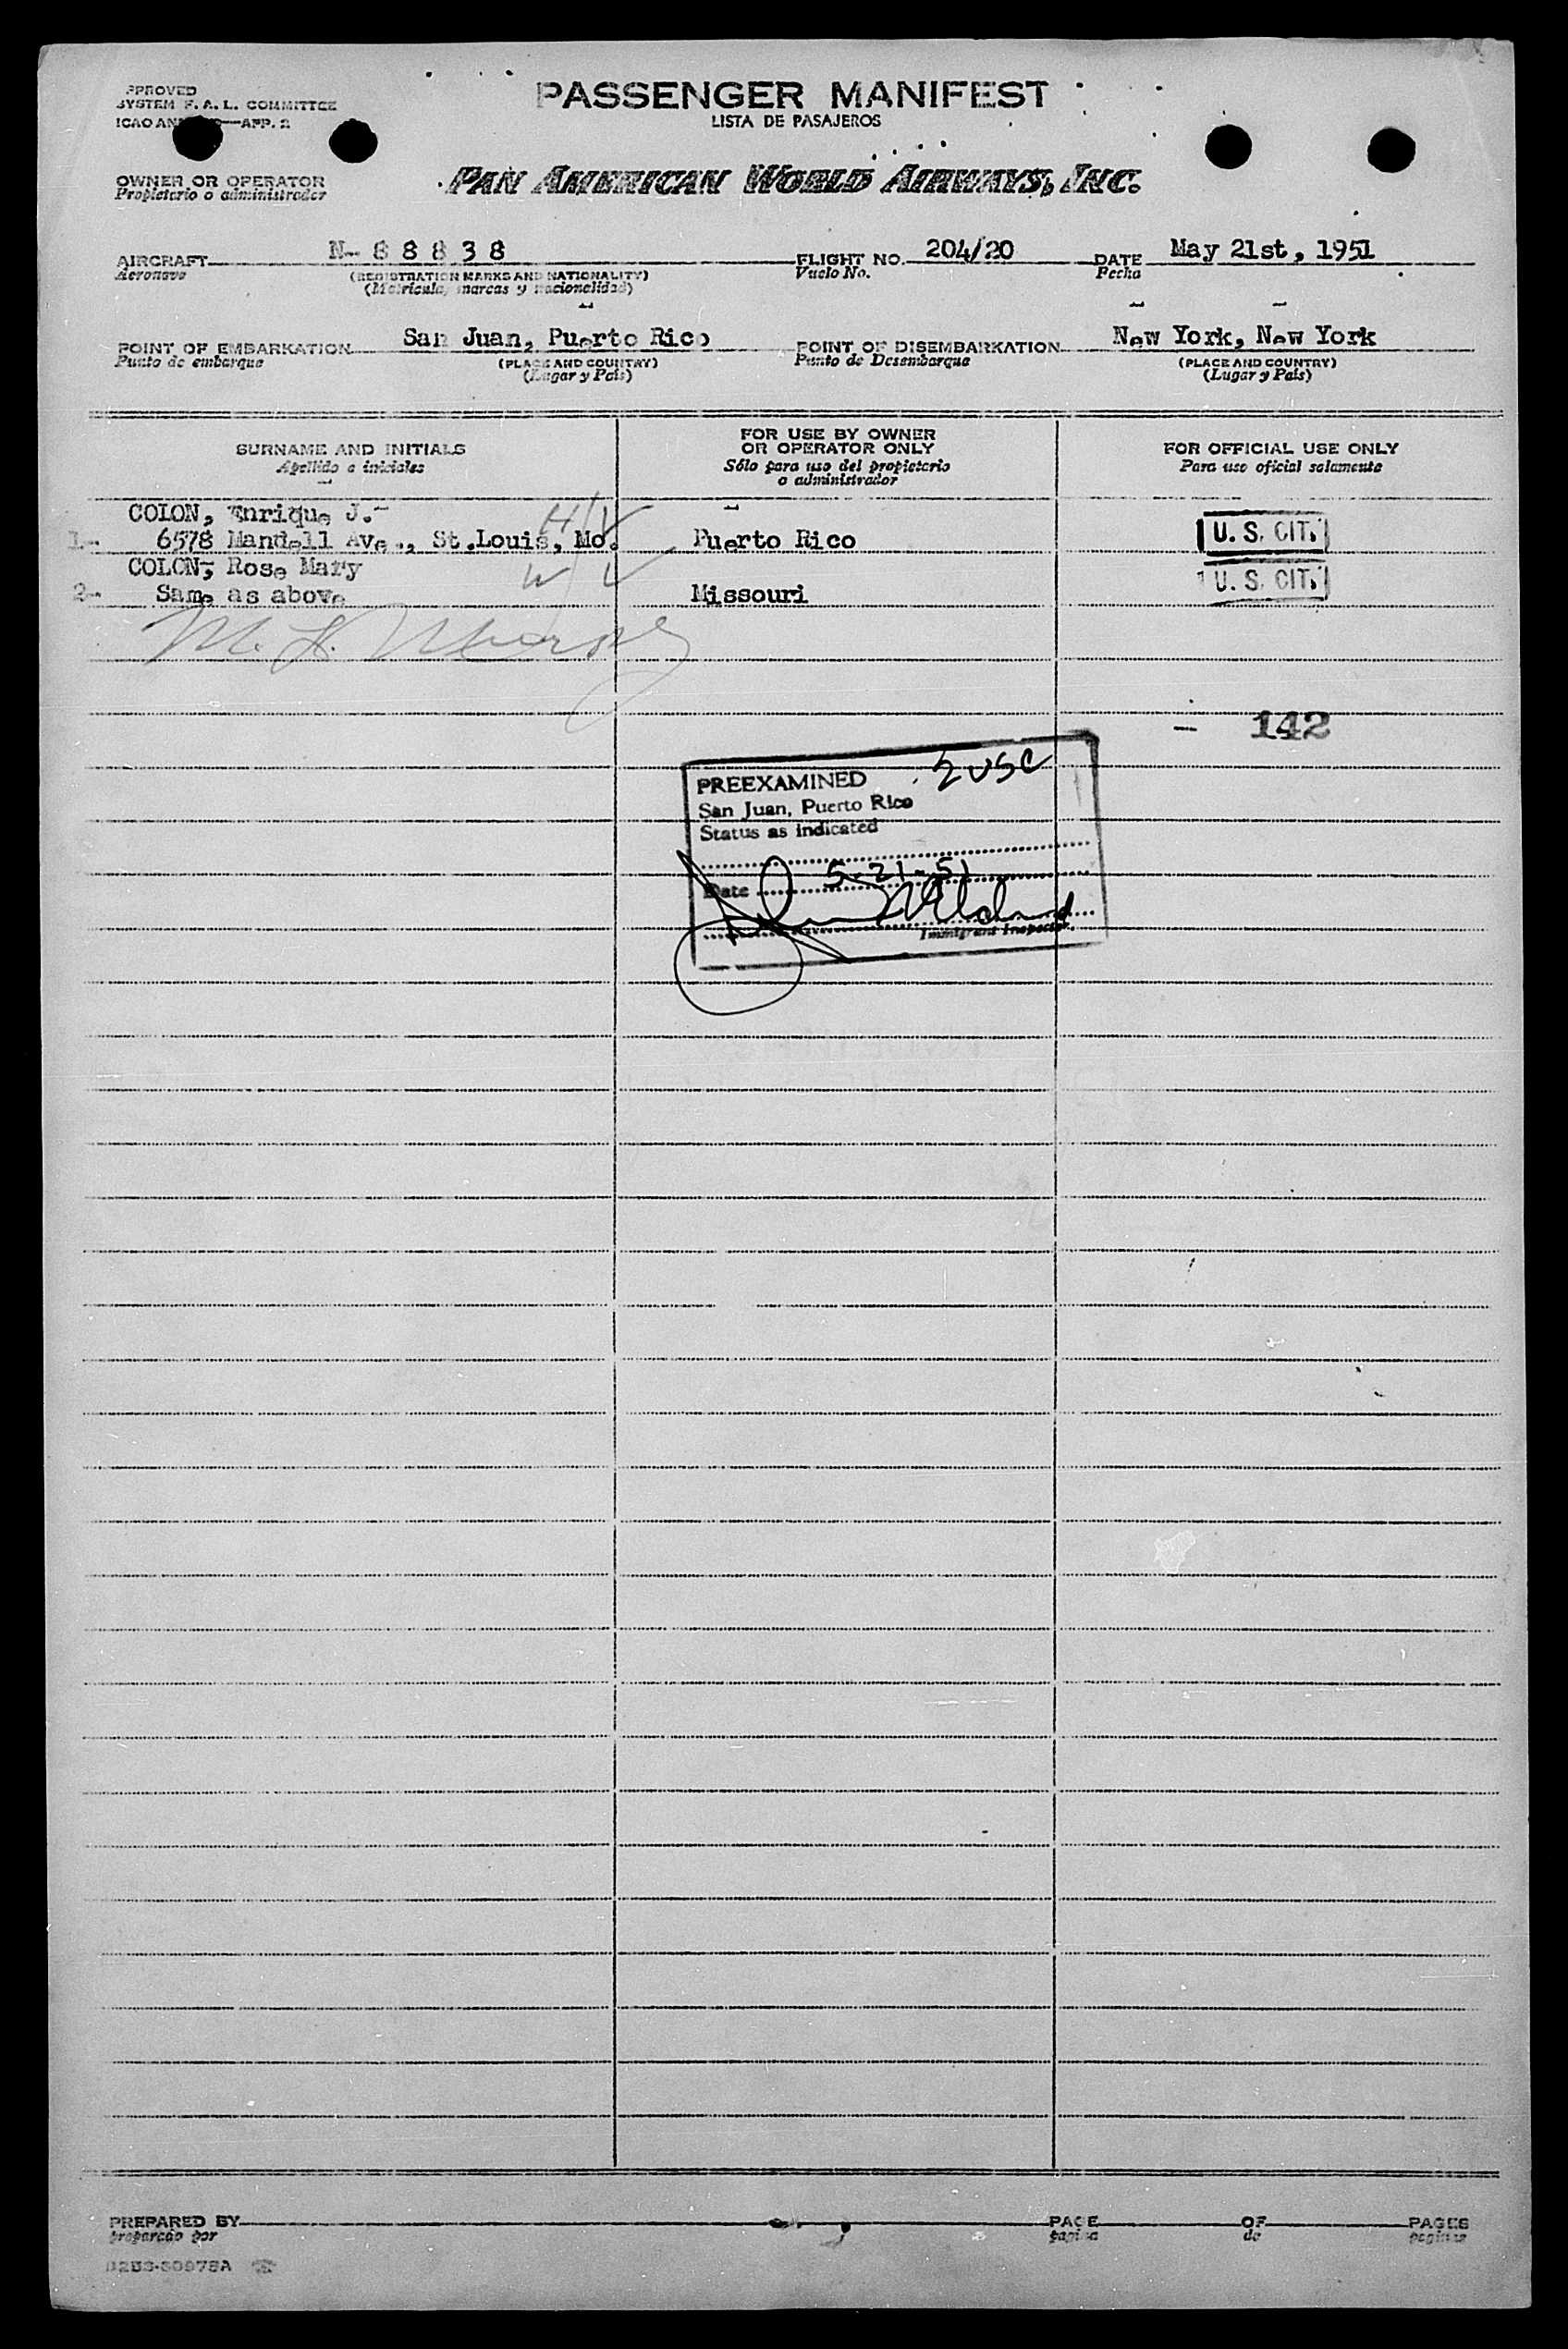 PASSENGER MANIFEST
LISTA DE PASAJEROS
PPROVED
SYSTEM F. A. L. COMMITTEE
ICAO APP. 2
OWNER OR OPERATOR
Propietario o administrador
PAN AMERICAN WORLD AIRWAYS, INC.
AIRCRAFT N- 8 8 8 3 8 FLIGHT NO. 204/20 DATE May 21st, 1951
Aeronave (REGISTRATION MARKS AND NATIONALITY) Vuelo No. Fecha
(Matricula, marcas y nacionalidad)
POINT OF EMBARKATION San Juan, Puerto Rico POINT OF DISEMBARKATION New York, New York
Punto de embarque (PLACE AND COUNTRY) Punto de Desembarque (PLACE AND COUNTRY)
(Lugar y Pais) (Lugar y Pais)
SURNAME AND INITIALS FOR USE BY OWNER OR OPERATOR ONLY FOR OFFICIAL USE ONLY
Apellido e iniciales Sólo para uso del propietario o administrador Para uso oficial solamente
COLON, Enrique J.- H/
1- 6578 Mandell Ave., St.Louis, Mo. Puerto Rico U. S. CIT.
COLON, Rose Mary W/
2- Same as above Missouri U. S. CIT.
M. L.
- 142
PREEXAMINED 2 USC
San Juan, Puerto Rico
Status as indicated
Date 5-21-51
Immigrant Inspector.
PREPARED BY PAGE OF PAGES
preparado por pagina de paginas